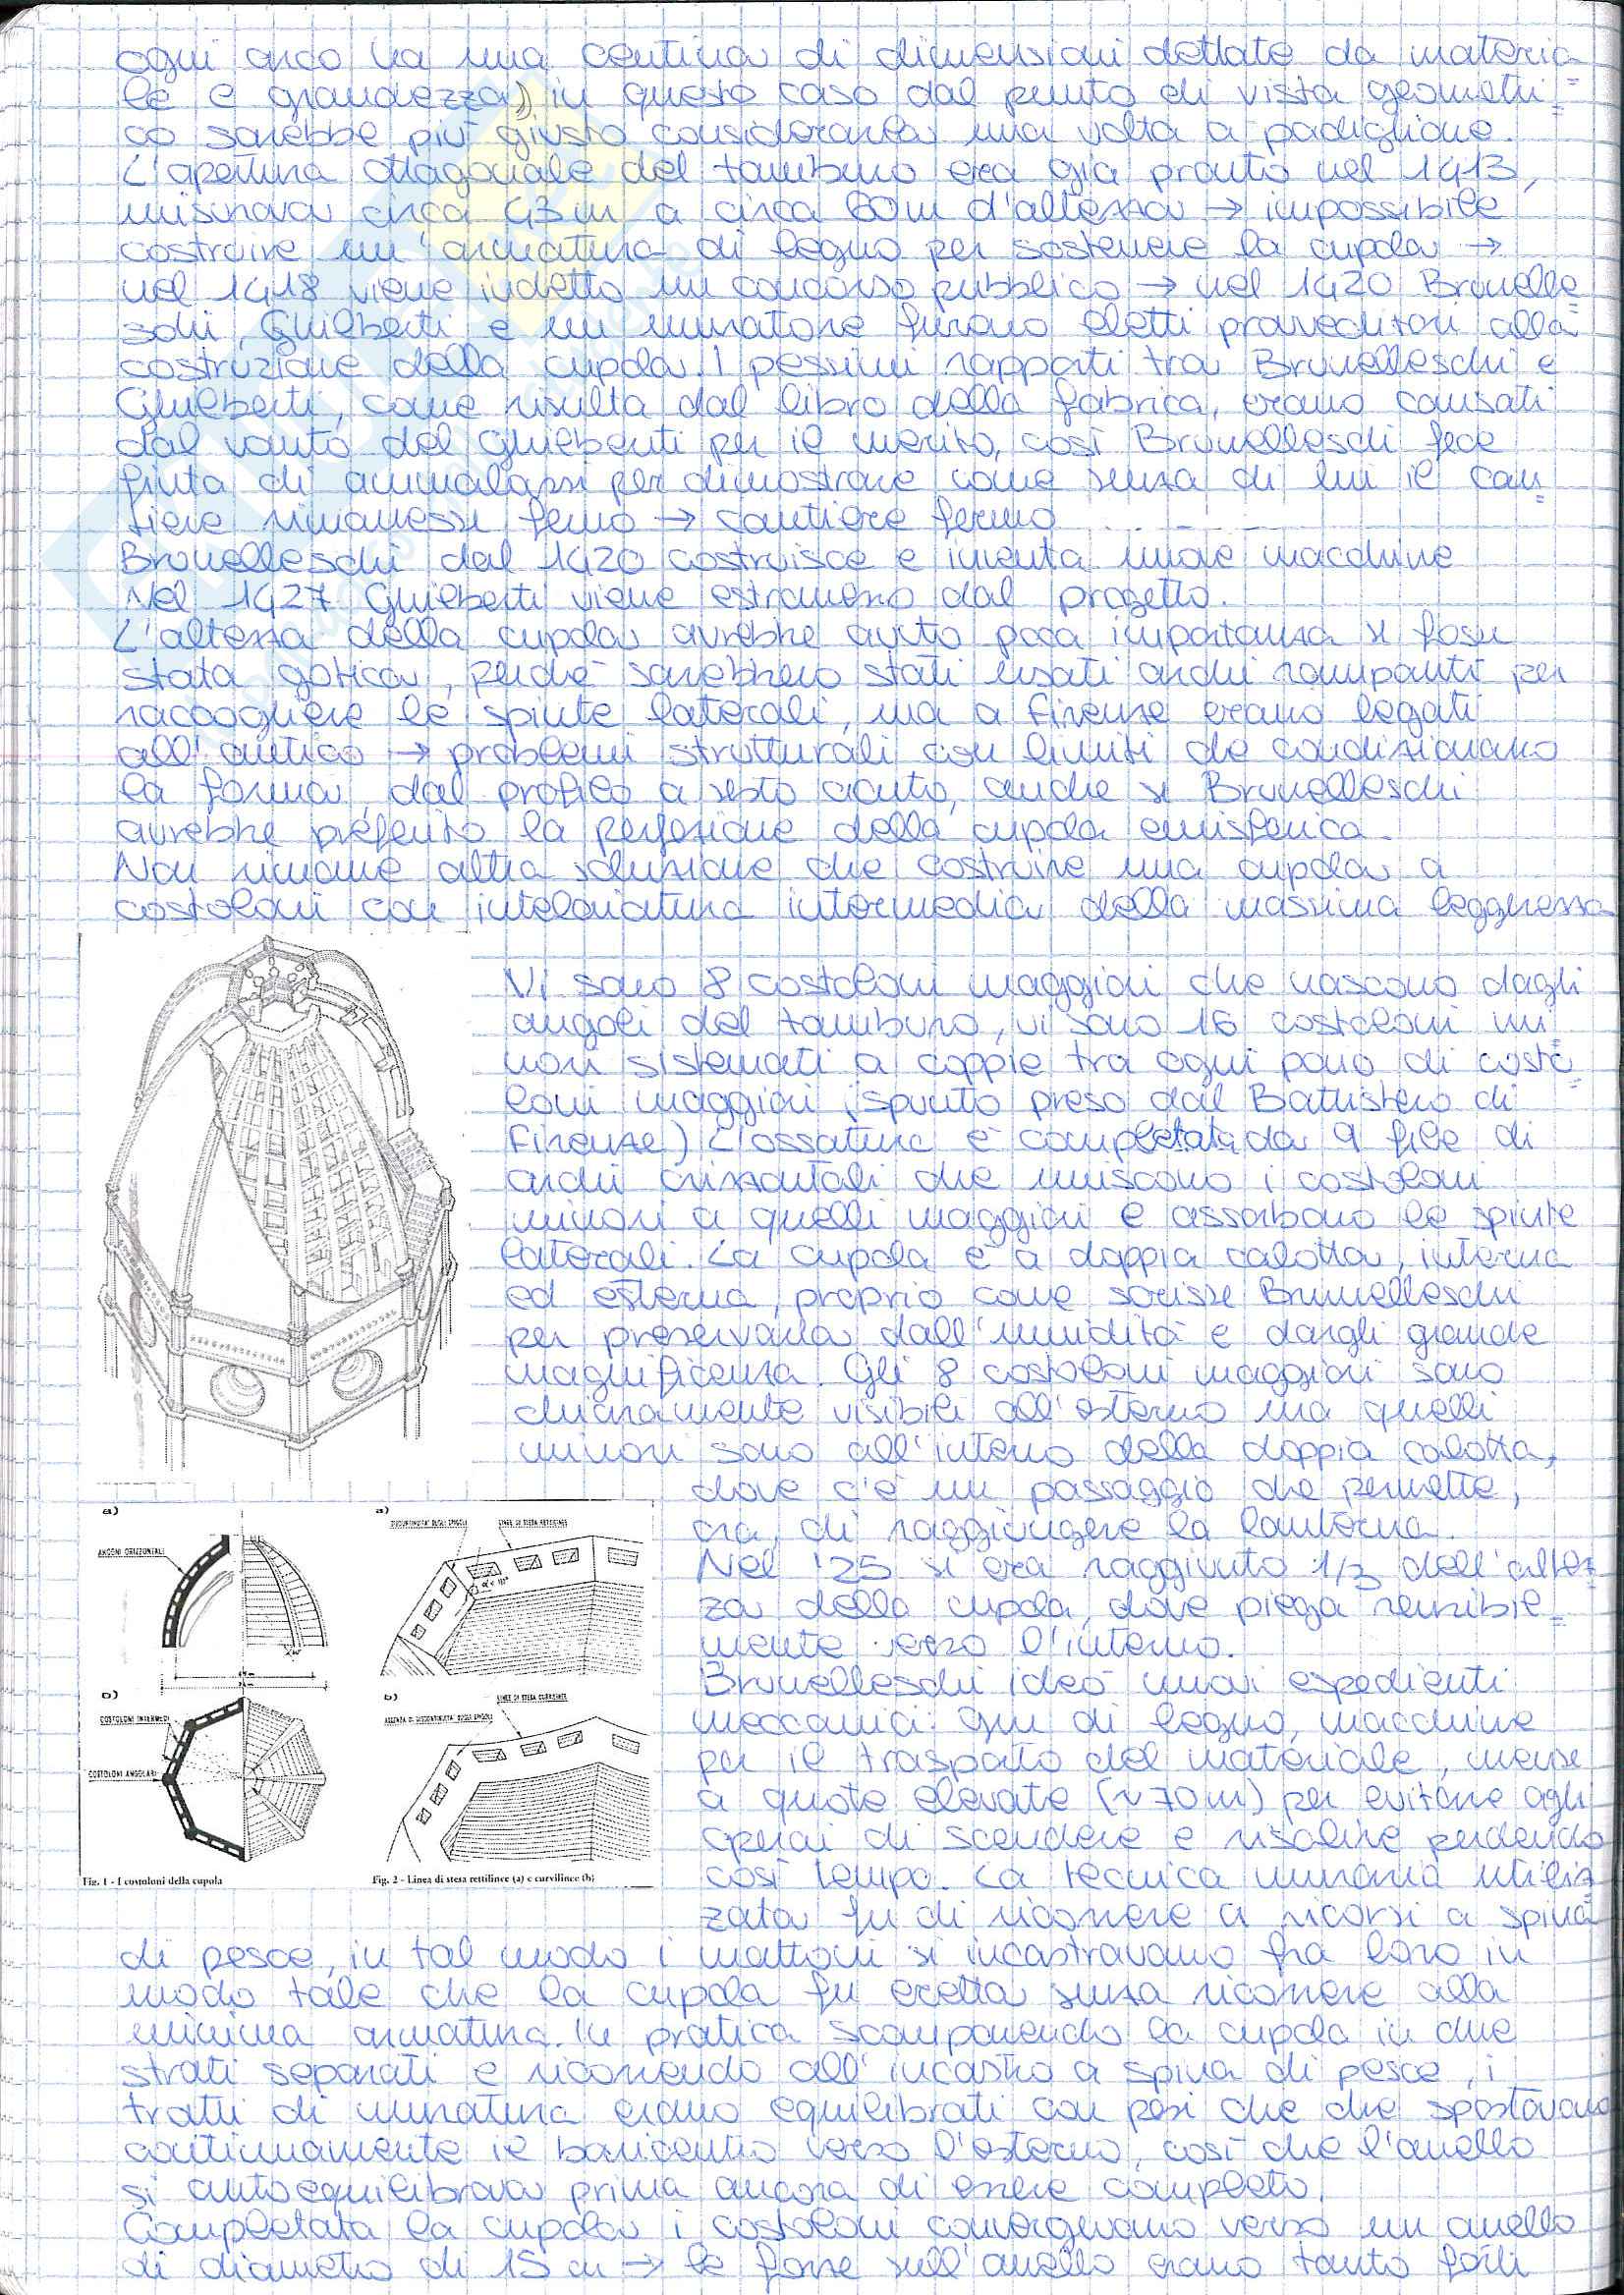 ogni arco ha una centina di dimensioni dettate da materia
le e grandezza), in questo caso dal punto di vista geometri=
co sarebbe più giusto considerarla una volta a padiglione.
L'apertura ottagonale del tamburo era già pronta nel 1413,
misurava circa 43 m a circa 60 m d'altezza → impossibile
costruire un'armatura di legno per sostenere la cupola →
nel 1418 viene indetto un concorso pubblico → nel 1420 Brunelle=
schi, Ghilberti e un muratore furono eletti provveditori alla
costruzione della cupola. I pessimi rapporti tra Brunelleschi e
Ghilberti, come risulta dal libro della fabrica, erano causati
dal vanto del Ghilberti per il merito, così Brunelleschi fece
finta di ammalarsi per dimostrare come senza di lui il can=
tiere rimanesse fermo → cantiere fermo
Brunelleschi dal 1420 costruisce e inventa nuove macchine
Nel 1427 Ghilberti viene estromesso dal progetto.
L'altezza della cupola avrebbe avuto poca importanza se fosse
stata gotica, perchè sarebbero stati usati archi rampanti per
raccogliere le spinte laterali, ma a Firenze erano legati
all'antico → problemi strutturali con limiti che condizionano
la forma, dal profilo a sesto acuto, anche se Brunelleschi
avrebbe preferito la perfezione della cupola emisferica.
Non rimane altra soluzione che costruire una cupola a
costoloni con intelaiatura intermedia della massima leggerezza
Vi sono 8 costoloni maggiori che nascono dagli
angoli del tamburo, vi sono 16 costoloni mi=
nori sistemati a coppie tra ogni paio di costo=
loni maggiori (spunto preso dal Battistero di
Firenze) L'ossatura è completata da 9 file di
archi orizzontali che uniscono i costoloni
minori a quelli maggiori e assorbono le spinte
laterali. La cupola è a doppia calotta, interna
ed esterna, proprio come scrisse Brunelleschi
per preservarla dall'umidità e dargli grande
magnificenza. Gli 8 costoloni maggiori sono
chiaramente visibili all'esterno ma quelli
minori sono all'interno della doppia calotta,
dove c'è un passaggio che permette,
ora, di raggiungere la lanterna.
Nel '25 si era raggiunto 1/3 dell'altez=
za della cupola, dove piega sensibil=
mente verso l'interno.
Brunelleschi ideò nuovi espedienti
meccanici: gru di legno, macchine
per il trasporto del materiale, mense
a quote elevate (~70m) per evitare agli
operai di scendere e risalire perdendo
così tempo. La tecnica muraria utiliz=
zata fu di ricorrere a ricorsi a spina
di pesce, in tal modo i mattoni si incastravano fra loro in
modo tale che la cupola fu eretta senza ricorrere alla
minima armatura. In pratica scomponendo la cupola in due
strati separati e ricorrendo all'incastro a spina di pesce, i
tratti di muratura erano equilibrati con pesi che che spostavano
continuamente il baricentro verso l'esterno, così che l'anello
si autoequilibrava prima ancora di essere completo.
Completata la cupola i costoloni convergevano verso un anello
di diametro di 15 m → le forze sull'anello erano tanto forti
a)
ANCONI ORIZZONTALI
b)
COSTOLONI INTERMEDI
COSTOLONI ANGOLARI
Fig. 1 - I costoloni della cupola
a)
DISCONTINUITA' SUGLI SPIGOLI
LINEE DI STESA RETTILINEE
b)
LINEE DI STESA CURVILINEE
ASSENZA DI DISCONTINUITA' SUGLI SPIGOLI
Fig. 2 - Linea di stesa rettilinee (a) e curvilinee (b)